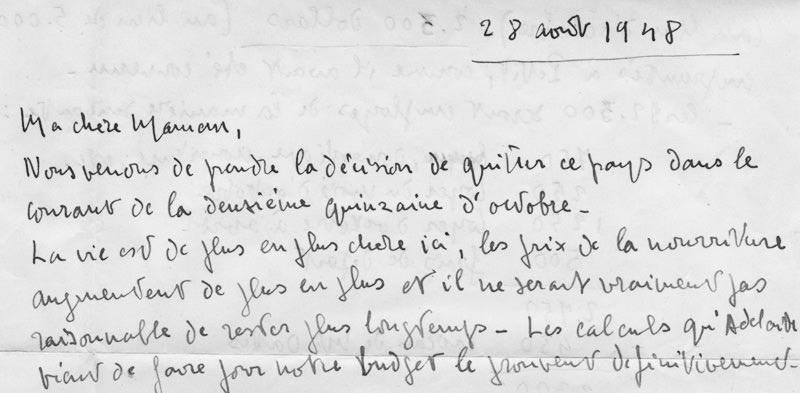 28 août 1948
Ma chère Maman,
Nous venons de prendre la décision de quitter ce pays dans le
courant de la deuxième quinzaine d'octobre.
La vie est de plus en plus chère ici, les prix de la nourriture
augmentent de plus en plus et il ne serait vraiment pas
raisonnable de rester plus longtemps - Les calculs qu'Adelaide
vient de faire pour notre budget le prouvent définitivement -